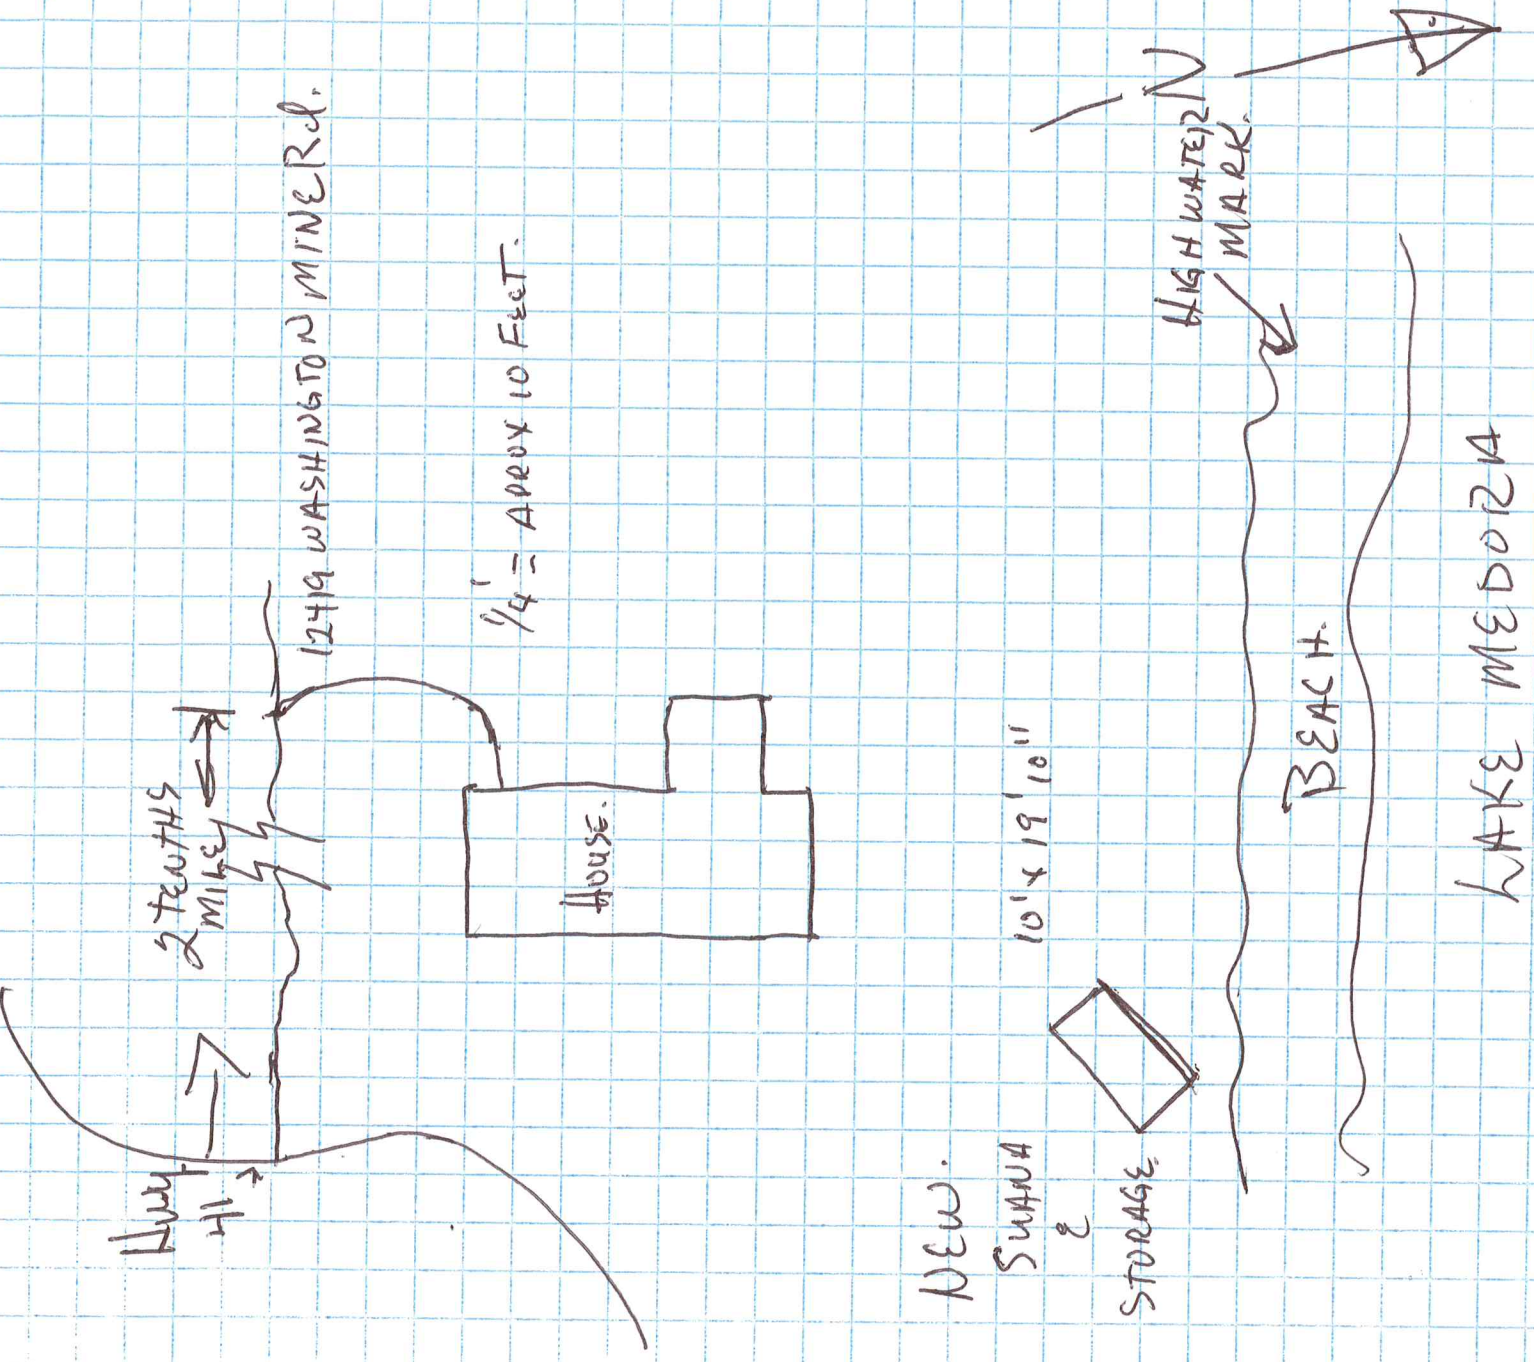 Hwy
41
2 TENTHS
MILE
12419 WASHINGTON MINE Rd.
1/4' = APROX 10 FEET.
HOUSE.
NEW.
SUANA
&
STORAGE
10' x 19' 10"
N
HIGH WATER
MARK.
BEACH.
LAKE MEDORA